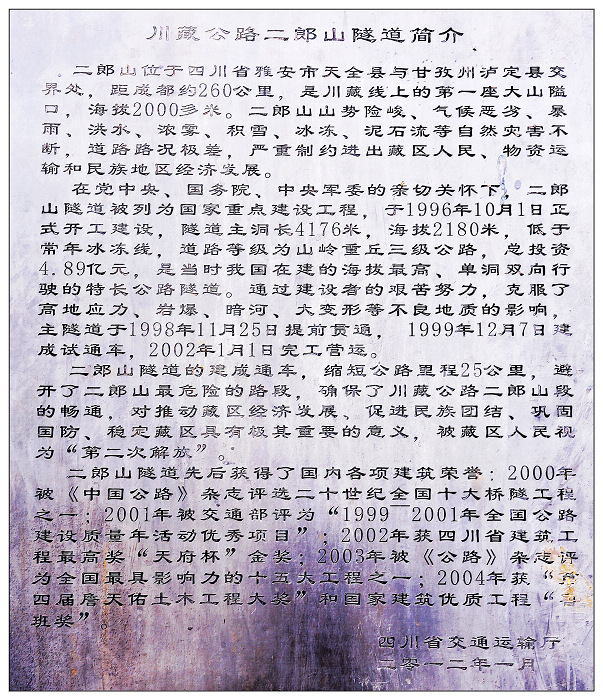 川藏公路二郎山隧道简介
二郎山位于四川省雅安市天全县与甘孜州泸定县交
界处，距成都约260公里，是川藏线上的第一座大山隘
口，海拔2000多米。二郎山山势险峻、气候恶劣、暴
雨、洪水、浓雾、积雪、冰冻、泥石流等自然灾害不
断，道路路况极差，严重制约进出藏区人民、物资运
输和民族地区经济发展。
在党中央、国务院、中央军委的亲切关怀下，二郎
山隧道被列为国家重点建设工程，于1996年10月1日正
式开工建设，隧道主洞长4176米，海拔2180米，低于
常年冰冻线，道路等级为山岭重丘三级公路，总投资
4.89亿元，是当时我国在建的海拔最高、单洞双向行
驶的特长公路隧道。通过建设者的艰苦努力，克服了
高地应力、岩爆、暗河、大变形等不良地质的影响，
主隧道于1998年11月25日提前贯通，1999年12月7日建
成试通车，2002年1月1日完工营运。
二郎山隧道的建成通车，缩短公路里程25公里，避
开了二郎山最危险的路段，确保了川藏公路二郎山段
的畅通，对推动藏区经济发展、促进民族团结、巩固
国防、稳定藏区具有极其重要的意义，被藏区人民视
为“第二次解放”。
二郎山隧道先后获得了国内各项建筑荣誉：2000年
被《中国公路》杂志评选二十世纪全国十大桥隧工程
之一；2001年被交通部评为“1999—2001年全国公路
建设质量年活动优秀项目”；2002年获四川省建筑工
程最高奖“天府杯”金奖；2003年被《公路》杂志评
为全国最具影响力的十五大工程之一；2004年获“第
四届詹天佑土木工程大奖”和国家建筑优质工程“鲁
班奖”。
四川省交通运输厅
二零一二年一月